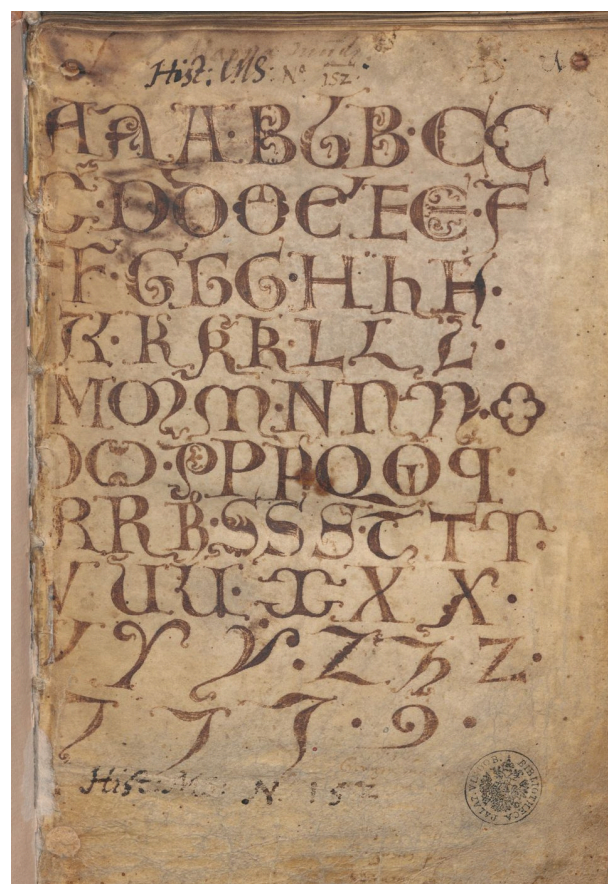 Hist: MS: Nº 152.
A A A · B B B · C C
C · D D O O E ' E E · F
F F · G G G · H h H ·
K · K K K · L L L ·
M M M · N N N · O
O O · P P P Q Q q ·
R R R · S S S · T T T ·
V U U · X X X ·
Y Y Y · Z Z Z ·
J J J · 9 ·
Hist: MS: N. 152
BIBLIOTHECA PALAT. VINDOB.